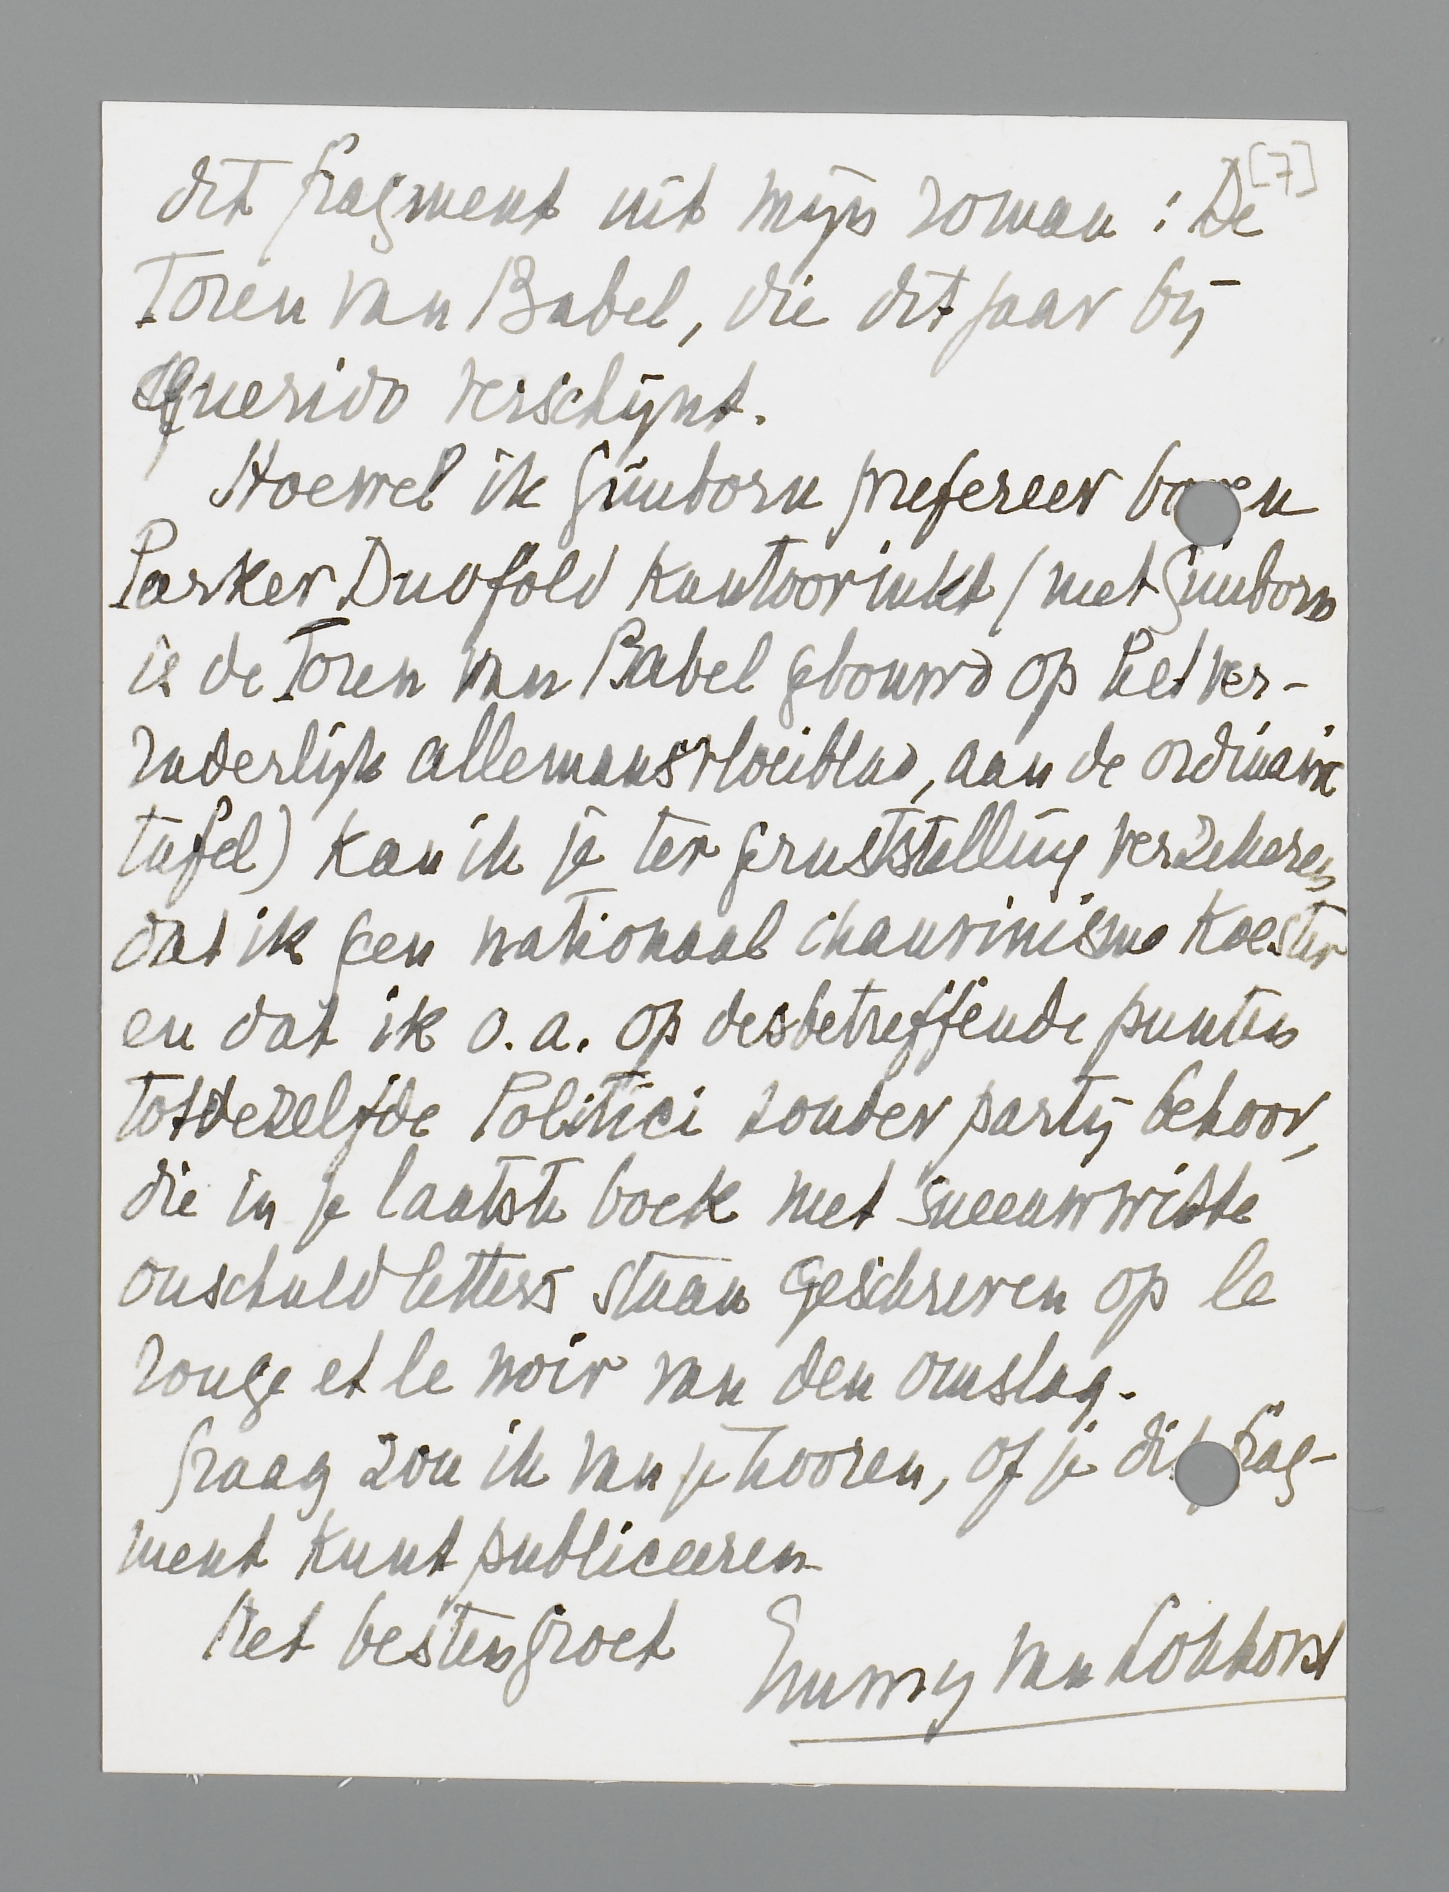 [7]
dit fragment uit mijn roman: De
Toren van Babel, die dit jaar bij
Querido verschijnt.
Hoewel ik Gimborn prefereer boven
Parker Duofold kantoorinkt (met Gimborn
is de Toren van Babel gebouwd op het ver-
raderlijk allemansvloeiblad, aan de ordinaire
tafel) kan ik je ter geruststelling verzekeren,
dat ik geen nationaal chauvinisme koester
en dat ik o.a. op desbetreffende punten
tot dezelfde Politici zonder partij behoor,
die in je laatste boek met sneeuwwitte
onschuldletters staan geschreven op le
rouge et le noir van den omslag.
Graag zou ik van je hooren, of je dit frag-
ment kunt publiceeren
Met besten groet
Emmy van Lokhorst